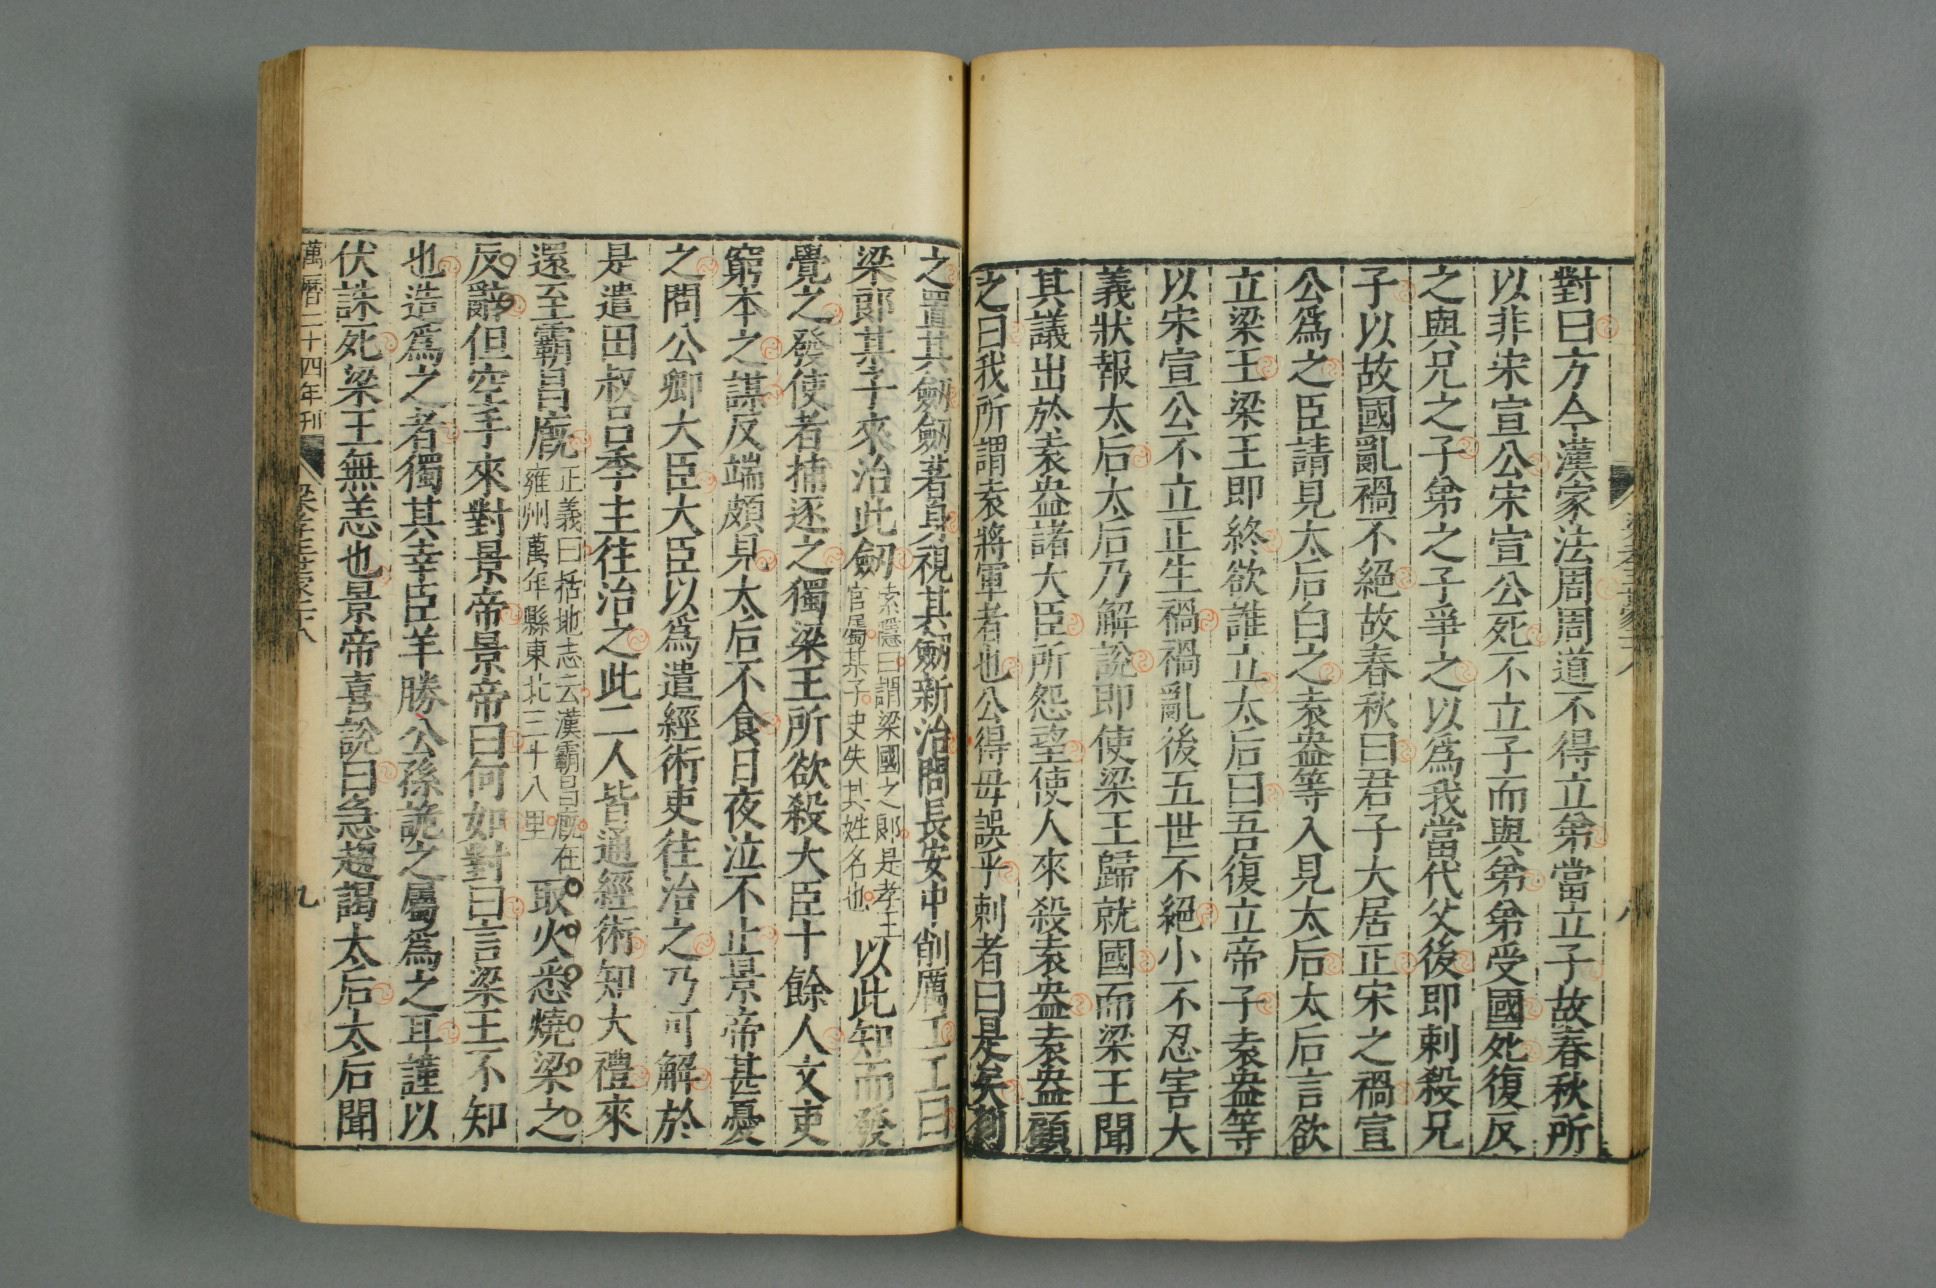 對曰方今漢家法周周道不得立弟當立子故春秋所
以非宋宣公宋宣公死不立子而與弟弟受國死復反
之與兄之子弟之子爭之以爲我當代父後即刺殺兄
子以故國亂禍不絕故春秋曰君子大居正宋之禍宣
公爲之臣請見太后白之袁盎等入見太后太后言欲
立梁王梁王即終欲誰立太后曰吾復立帝子袁盎等
以宋宣公不立正生禍禍亂後五世不絕小不忍害大
義狀報太后太后乃解說即使梁王歸就國而梁王聞
其議出於袁盎諸大臣所怨望使人來殺袁盎袁盎顧
之曰我所謂袁將軍者也公得毋誤乎刺者曰是矣刺
八
之置其劒劒著身視其劒新治問長安中削厲工工曰
梁郎某子來治此劒
索隱曰謂梁國之郎是孝王
官屬某子史失其姓名也
以此知而發
覺之發使者捕逐之獨梁王所欲殺大臣十餘人文吏
窮本之謀反端頗見太后不食日夜泣不止景帝甚憂
之問公卿大臣大臣以爲遣經術吏往治之乃可解於
是遣田叔呂季主往治之此二人皆通經術知大禮來
還至霸昌廐
正義曰括地志云漢霸昌廐在
雍州萬年縣東北三十八里
取火悉燒梁之
反辭但空手來對景帝景帝曰何如對曰言梁王不知
也造爲之者獨其幸臣羊勝公孫詭之屬爲之耳謹以
伏誅死梁王無恙也景帝喜說曰急趨謁太后太后聞
萬曆二十四年刊
梁孝王世家二十八
九